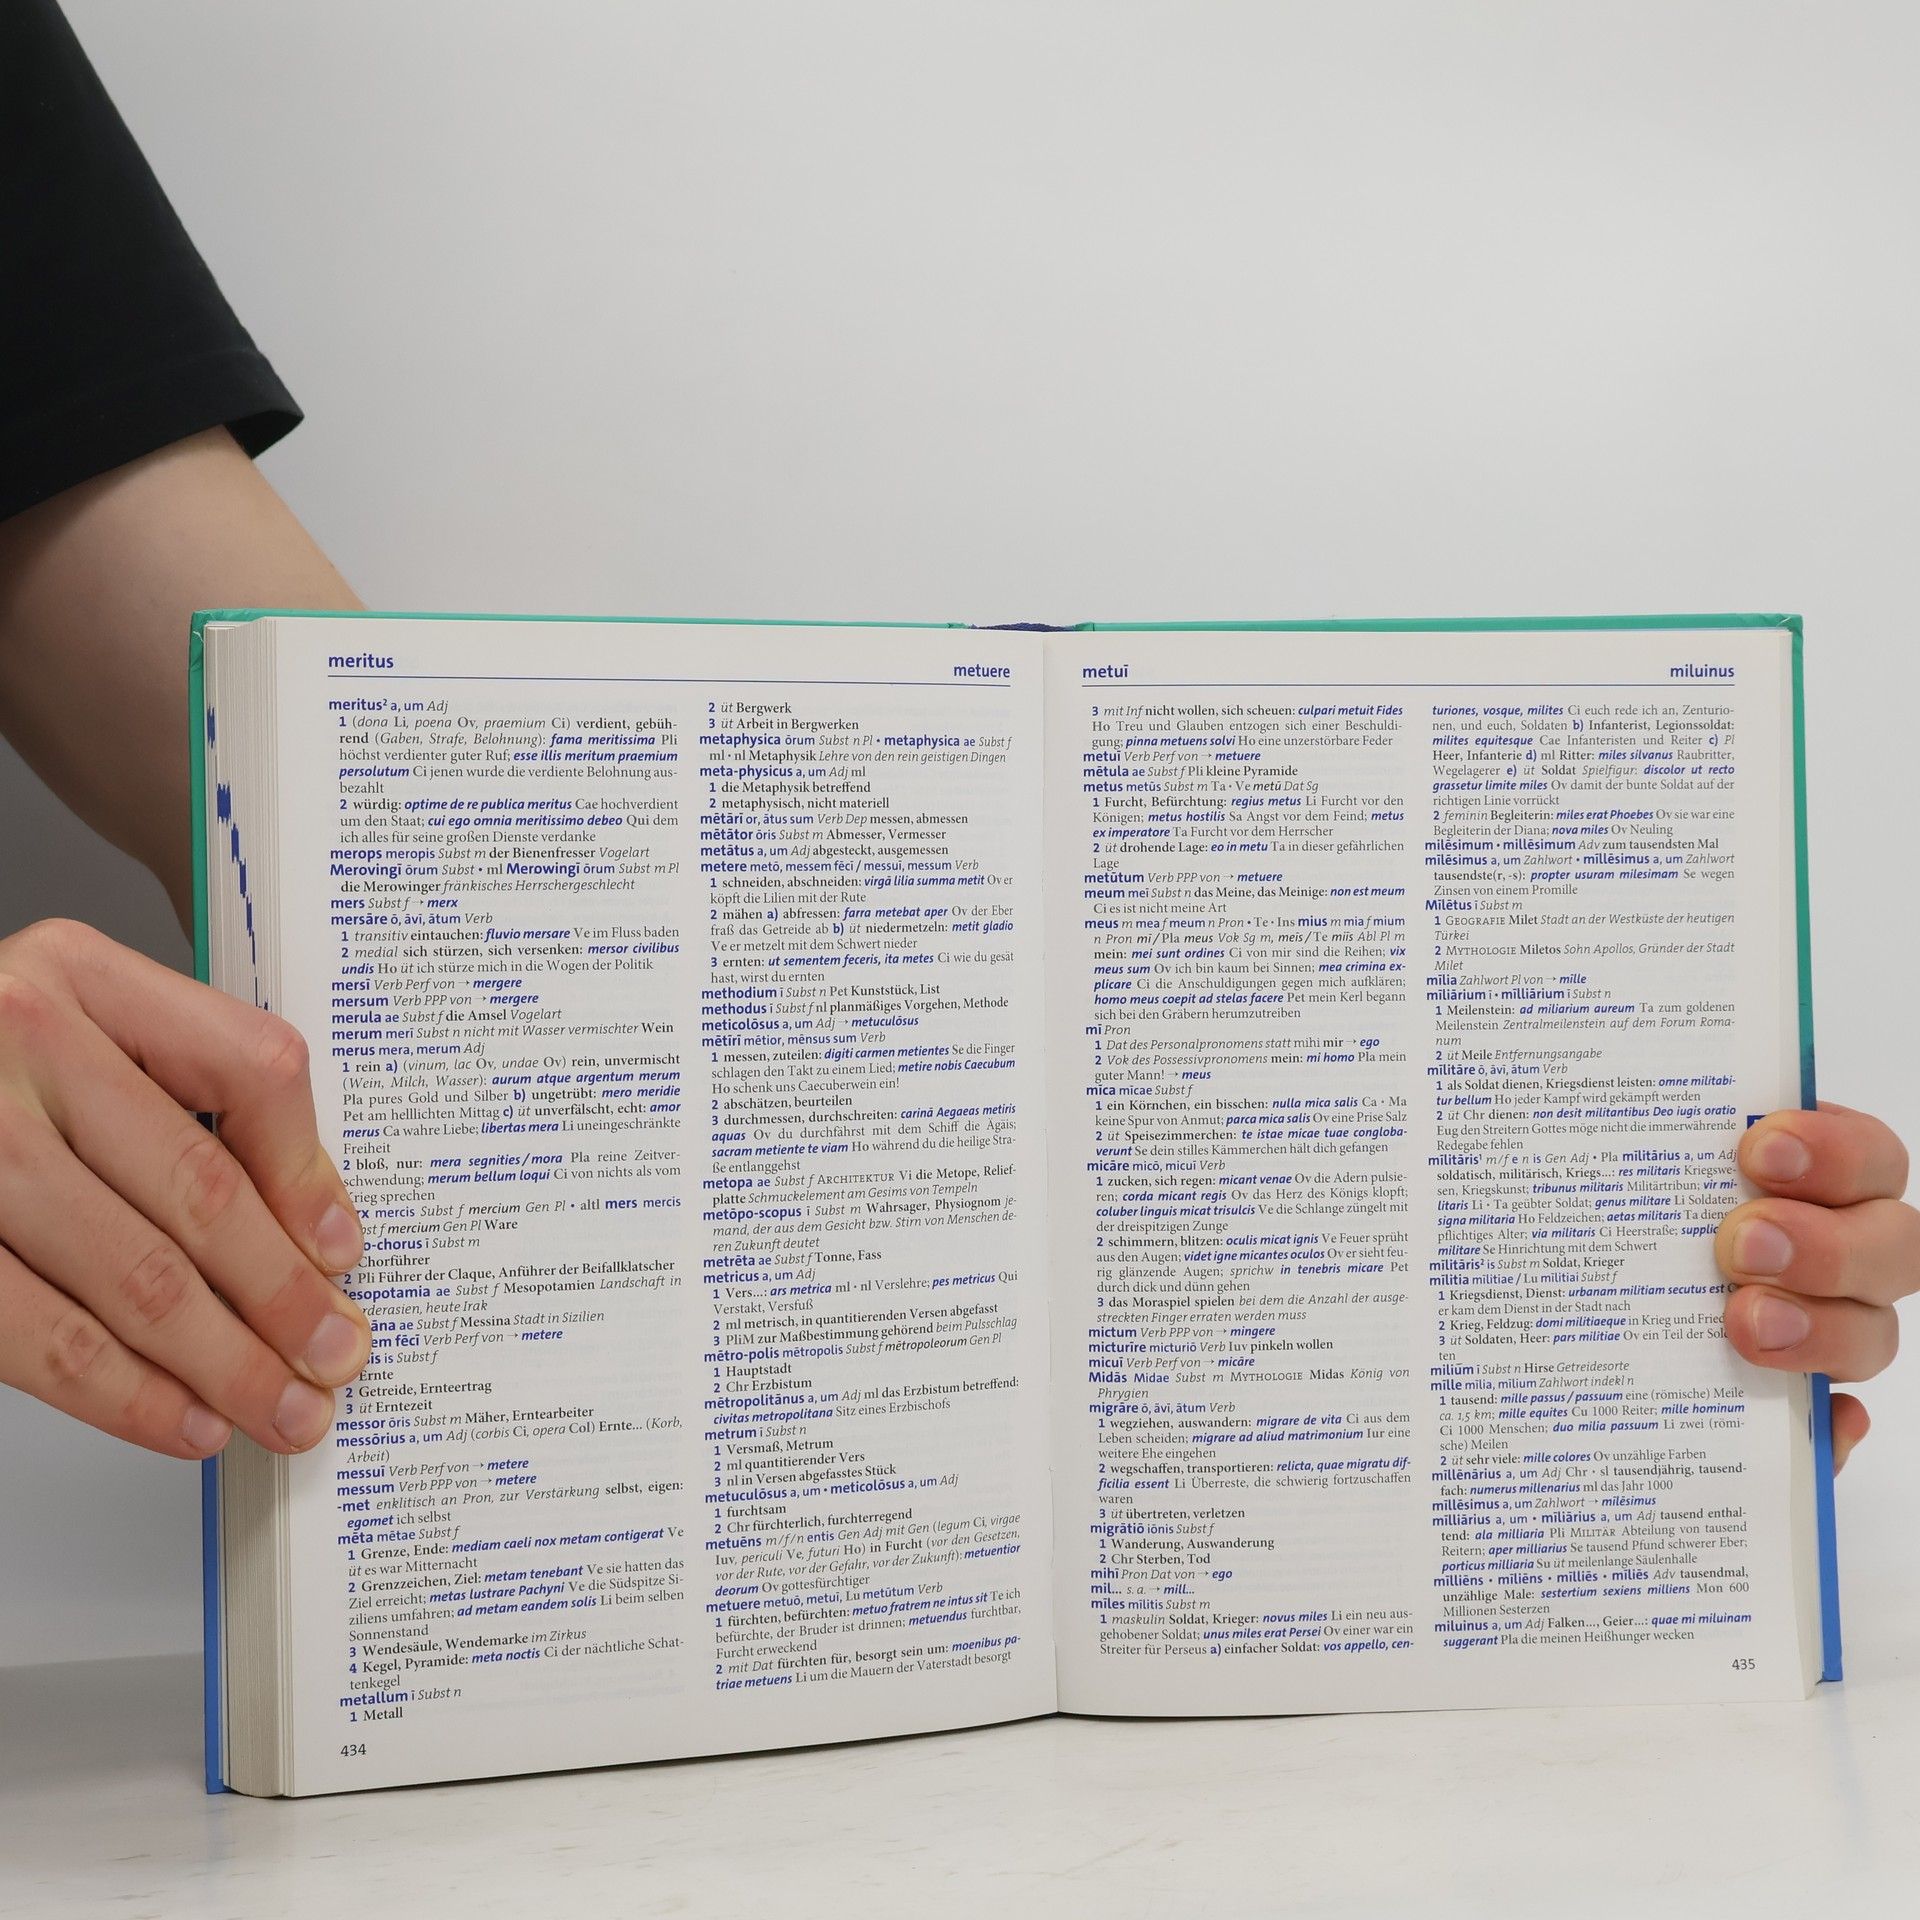 meritus
metuere
meritus² a, um Adj
1 (dona Li, poena Ov, praemium Ci) verdient, gebüh-
rend (Gaben, Strafe, Belohnung): fama meritissima Pli
höchst verdienter guter Ruf; esse illis meritum praemium
persolutum Ci jenen wurde die verdiente Belohnung aus-
bezahlt
2 würdig: optime de re publica meritus Cae hochverdient
um den Staat; cui ego omnia meritissimo debeo Qui dem
ich alles für seine großen Dienste verdanke
merops meropis Subst m der Bienenfresser Vogelart
Merovingī ōrum Subst • ml Merowingī ōrum Subst m Pl
die Merowinger fränkisches Herrschergeschlecht
mers Subst f → merx
mersāre ō, āvī, ātum Verb
1 transitiv eintauchen: fluvio mersare Ve im Fluss baden
2 medial sich stürzen, sich versenken: mersor civilibus
undis Ho üt ich stürze mich in die Wogen der Politik
mersī Verb Perf von → mergere
mersum Verb PPP von → mergere
merula ae Subst f die Amsel Vogelart
merum merī Subst n nicht mit Wasser vermischter Wein
merus mera, merum Adj
1 rein a) (vinum, lac Ov, undae Ov) rein, unvermischt
(Wein, Milch, Wasser): aurum atque argentum merum
Pla pures Gold und Silber b) ungetrübt: mero meridie
Pet am helllichten Mittag c) üt unverfälscht, echt: amor
merus Ca wahre Liebe; libertas mera Li uneingeschränkte
Freiheit
2 bloß, nur: mera segnities/mora Pla reine Zeitver-
schwendung; merum bellum loqui Ci von nichts als vom
Krieg sprechen
rx mercis Subst f mercium Gen Pl • altl mers mercis
bst f mercium Gen Pl Ware
o-chorus ī Subst m
Chorführer
2 Pli Führer der Claque, Anführer der Beifallklatscher
esopotamia ae Subst f Mesopotamien Landschaft in
rderasien, heute Irak
āna ae Subst f Messina Stadt in Sizilien
em fēcī Verb Perf von → metere
sis is Subst f
Ernte
2 Getreide, Ernteertrag
3 üt Erntezeit
messor ōris Subst m Mäher, Erntearbeiter
messōrius a, um Adj (corbis Ci, opera Col) Ernte... (Korb,
Arbeit)
messuī Verb Perf von → metere
messum Verb PPP von → metere
-met enklitisch an Pron, zur Verstärkung selbst, eigen:
egomet ich selbst
mēta mētae Subst f
1 Grenze, Ende: mediam caeli nox metam contigerat Ve
üt es war Mitternacht
2 Grenzzeichen, Ziel: metam tenebant Ve sie hatten das
Ziel erreicht; metas lustrare Pachyni Ve die Südspitze Si-
ziliens umfahren; ad metam eandem solis Li beim selben
Sonnenstand
3 Wendesäule, Wendemarke im Zirkus
4 Kegel, Pyramide: meta noctis Ci der nächtliche Schat-
tenkegel
metallum ī Subst n
1 Metall
434
2 üt Bergwerk
3 üt Arbeit in Bergwerken
metaphysica ōrum Subst n Pl • metaphysica ae Subst f
ml • nl Metaphysik Lehre von den rein geistigen Dingen
meta-physicus a, um Adj ml
1 die Metaphysik betreffend
2 metaphysisch, nicht materiell
mētārī or, ātus sum Verb Dep messen, abmessen
mētātor ōris Subst m Abmesser, Vermesser
metātus a, um Adj abgesteckt, ausgemessen
metere metō, messem fēcī / messuī, messum Verb
1 schneiden, abschneiden: virgā lilia summa metit Ov er
köpft die Lilien mit der Rute
2 mähen a) abfressen: farra metebat aper Ov der Eber
fraß das Getreide ab b) üt niedermetzeln: metit gladio
Ve er metzelt mit dem Schwert nieder
3 ernten: ut sementem feceris, ita metes Ci wie du gesät
hast, wirst du ernten
methodium ī Subst n Pet Kunststück, List
methodus ī Subst f nl planmäßiges Vorgehen, Methode
meticolōsus a, um Adj → metuculōsus
mētīrī mētior, mēnsus sum Verb
1 messen, zuteilen: digiti carmen metientes Se die Finger
schlagen den Takt zu einem Lied; metire nobis Caecubum
Ho schenk uns Caecuberwein ein!
2 abschätzen, beurteilen
3 durchmessen, durchschreiten: carinā Aegaeas metiris
aquas Ov du durchfährst mit dem Schiff die Ägäis;
sacram metiente te viam Ho während du die heilige Stra-
ße entlanggehst
metopa ae Subst f ARCHITEKTUR Vi die Metope, Relief-
platte Schmuckelement am Gesims von Tempeln
metōpo-scopus ī Subst m Wahrsager, Physiognom je-
mand, der aus dem Gesicht bzw. Stirn von Menschen de-
ren Zukunft deutet
metrēta ae Subst f Tonne, Fass
metricus a, um Adj
1 Vers...: ars metrica ml • nl Verslehre; pes metricus Qui
Verstakt, Versfuß
2 ml metrisch, in quantitierenden Versen abgefasst
3 PliM zur Maßbestimmung gehörend beim Pulsschlag
mētro-polis mētropolis Subst f mētropoleorum Gen Pl
1 Hauptstadt
2 Chr Erzbistum
mētropolitānus a, um Adj ml das Erzbistum betreffend:
civitas metropolitana Sitz eines Erzbischofs
metrum ī Subst n
1 Versmaß, Metrum
2 ml quantitierender Vers
3 nl in Versen abgefasstes Stück
metuculōsus a, um • meticolōsus a, um Adj
1 furchtsam
2 Chr fürchterlich, furchterregend
metuēns m/f/n entis Gen Adj mit Gen (legum Ci, virgae
Iuv, periculi Ve, futuri Ho) in Furcht (vor den Gesetzen,
vor der Rute, vor der Gefahr, vor der Zukunft): metuentior
deorum Ov gottesfürchtiger
metuere metuō, metuī, Lu metūtum Verb
1 fürchten, befürchten: metuo fratrem ne intus sit Te ich
befürchte, der Bruder ist drinnen; metuendus furchtbar,
Furcht erweckend
2 mit Dat fürchten für, besorgt sein um: moenibus pa-
triae metuens Li um die Mauern der Vaterstadt besorgt
metuī
miluinus
3 mit Inf nicht wollen, sich scheuen: culpari metuit Fides
Ho Treu und Glauben entzogen sich einer Beschuldi-
gung; pinna metuens solvi Ho eine unzerstörbare Feder
metuī Verb Perf von → metuere
mētula ae Subst f Pli kleine Pyramide
metus metūs Subst m Ta • Ve metū Dat Sg
1 Furcht, Befürchtung: regius metus Li Furcht vor den
Königen; metus hostilis Sa Angst vor dem Feind; metus
ex imperatore Ta Furcht vor dem Herrscher
2 üt drohende Lage: eo in metu Ta in dieser gefährlichen
Lage
metūtum Verb PPP von → metuere
meum meī Subst n das Meine, das Meinige: non est meum
Ci es ist nicht meine Art
meus m mea f meum n Pron • Te • Ins mius m mia f mium
n Pron mī/Pla meus Vok Sg m, meīs/Te mīīs Abl Pl m
mein: mei sunt ordines Ci von mir sind die Reihen; vix
meus sum Ov ich bin kaum bei Sinnen; mea crimina ex-
plicare Ci die Anschuldigungen gegen mich aufklären;
homo meus coepit ad stelas facere Pet mein Kerl begann
sich bei den Gräbern herumzutreiben
mī Pron
1 Dat des Personalpronomens statt mihi mir → ego
2 Vok des Possessivpronomens mein: mi homo Pla mein
guter Mann! → meus
mīca mīcae Subst f
1 ein Körnchen, ein bisschen: nulla mica salis Ca • Ma
keine Spur von Anmut; parca mica salis Ov eine Prise Salz
2 üt Speisezimmerchen: te istae micae tuae congloba-
verunt Se dein stilles Kämmerchen hält dich gefangen
micāre micō, micuī Verb
1 zucken, sich regen: micant venae Ov die Adern pulsie-
ren; corda micant regis Ov das Herz des Königs klopft;
coluber linguis micat trisulcis Ve die Schlange züngelt mit
der dreispitzigen Zunge
2 schimmern, blitzen: oculis micat ignis Ve Feuer sprüht
aus den Augen; videt igne micantes oculos Ov er sieht feu-
rig glänzende Augen; sprichw in tenebris micare Pet
durch dick und dünn gehen
3 das Moraspiel spielen bei dem die Anzahl der ausge-
streckten Finger erraten werden muss
mictum Verb PPP von → mingere
micturīre micturiō Verb Iuv pinkeln wollen
micuī Verb Perf von → micāre
Midās Midae Subst m MYTHOLOGIE Midas König von
Phrygien
migrāre ō, āvī, ātum Verb
1 wegziehen, auswandern: migrare de vita Ci aus dem
Leben scheiden; migrare ad aliud matrimonium Iur eine
weitere Ehe eingehen
2 wegschaffen, transportieren: relicta, quae migratu dif-
ficilia essent Li Überreste, die schwierig fortzuschaffen
waren
3 üt übertreten, verletzen
migrātiō iōnis Subst f
1 Wanderung, Auswanderung
2 Chr Sterben, Tod
mihī Pron Dat von → ego
mil... s. a. → mill...
mīles mīlitis Subst m
1 maskulin Soldat, Krieger: novus miles Li ein neu aus-
gehobener Soldat; unus miles erat Persei Ov einer war ein
Streiter für Perseus a) einfacher Soldat: vos appello, cen-
turiones, vosque, milites Ci euch rede ich an, Zenturio-
nen, und euch, Soldaten b) Infanterist, Legionssoldat:
milites equitesque Cae Infanteristen und Reiter c) Pl
Heer, Infanterie d) ml Ritter: miles silvanus Raubritter,
Wegelagerer e) üt Soldat Spielfigur: discolor ut recto
grassetur limite miles Ov damit der bunte Soldat auf der
richtigen Linie vorrückt
2 feminin Begleiterin: miles erat Phoebes Ov sie war eine
Begleiterin der Diana; nova miles Ov Neuling
mīlēsimum • mīllēsimum Adv zum tausendsten Mal
mīlēsimus a, um Zahlwort • mīllēsimus a, um Zahlwort
tausendste(r, -s): propter usuram milesimam Se wegen
Zinsen von einem Promille
Mīlētus ī Subst m
1 GEOGRAFIE Milet Stadt an der Westküste der heutigen
Türkei
2 MYTHOLOGIE Miletos Sohn Apollos, Gründer der Stadt
Milet
mīlia Zahlwort Pl von → mīlle
mīliārium ī • mīlliārium ī Subst n
1 Meilenstein: ad miliarium aureum Ta zum goldenen
Meilenstein Zentralmeilenstein auf dem Forum Roma-
num
2 üt Meile Entfernungsangabe
mīlitāre ō, āvī, ātum Verb
1 als Soldat dienen, Kriegsdienst leisten: omne militabi-
tur bellum Ho jeder Kampf wird gekämpft werden
2 üt Chr dienen: non desit militantibus Deo iugis oratio
Eug den Streitern Gottes möge nicht die immerwährende
Redegabe fehlen
mīlitāris¹ m/f e n is Gen Adj • Pla mīlitārius a, um Adj
soldatisch, militärisch, Kriegs...: res militaris Kriegswe-
sen, Kriegskunst; tribunus militaris Militärtribun; vir mi-
litaris Li • Ta geübter Soldat; genus militare Li Soldaten;
signa militaria Ho Feldzeichen; aetas militaris Ta diens
pflichtiges Alter; via militaris Ci Heerstraße; supplic
militare Se Hinrichtung mit dem Schwert
mīlitāris² is Subst m Soldat, Krieger
mīlitia mīlitiae / Lu mīlitiai Subst f
1 Kriegsdienst, Dienst: urbanam militiam secutus est
er kam dem Dienst in der Stadt nach
2 Krieg, Feldzug: domi militiaeque in Krieg und Fried
3 üt Soldaten, Heer: pars militiae Ov ein Teil der Sol
ten
milium ī Subst n Hirse Getreidesorte
mīlle mīlia, mīlium Zahlwort indekl n
1 tausend: mille passus / passuum eine (römische) Meile
ca. 1,5 km; mille equites Cu 1000 Reiter; mille hominum
Ci 1000 Menschen; duo milia passuum Li zwei (römi-
sche) Meilen
2 üt sehr viele: mille colores Ov unzählige Farben
mīllēnārius a, um Adj Chr • sl tausendjährig, tausend-
fach: numerus millenarius ml das Jahr 1000
mīllēsimus a, um Zahlwort → mīlēsimus
mīlliārius a, um • mīliārius a, um Adj tausend enthal-
tend: ala milliaria Pli MILITÄR Abteilung von tausend
Reitern; aper milliarius Se tausend Pfund schwerer Eber;
porticus milliaria Su üt meilenlange Säulenhalle
mīlliēns • mīliēns • mīlliēs • mīliēs Adv tausendmal,
unzählige Male: sestertium sexiens milliens Mon 600
Millionen Sesterzen
miluinus a, um Adj Falken..., Geier...: quae mi miluinam
suggerant Pla die meinen Heißhunger wecken
435